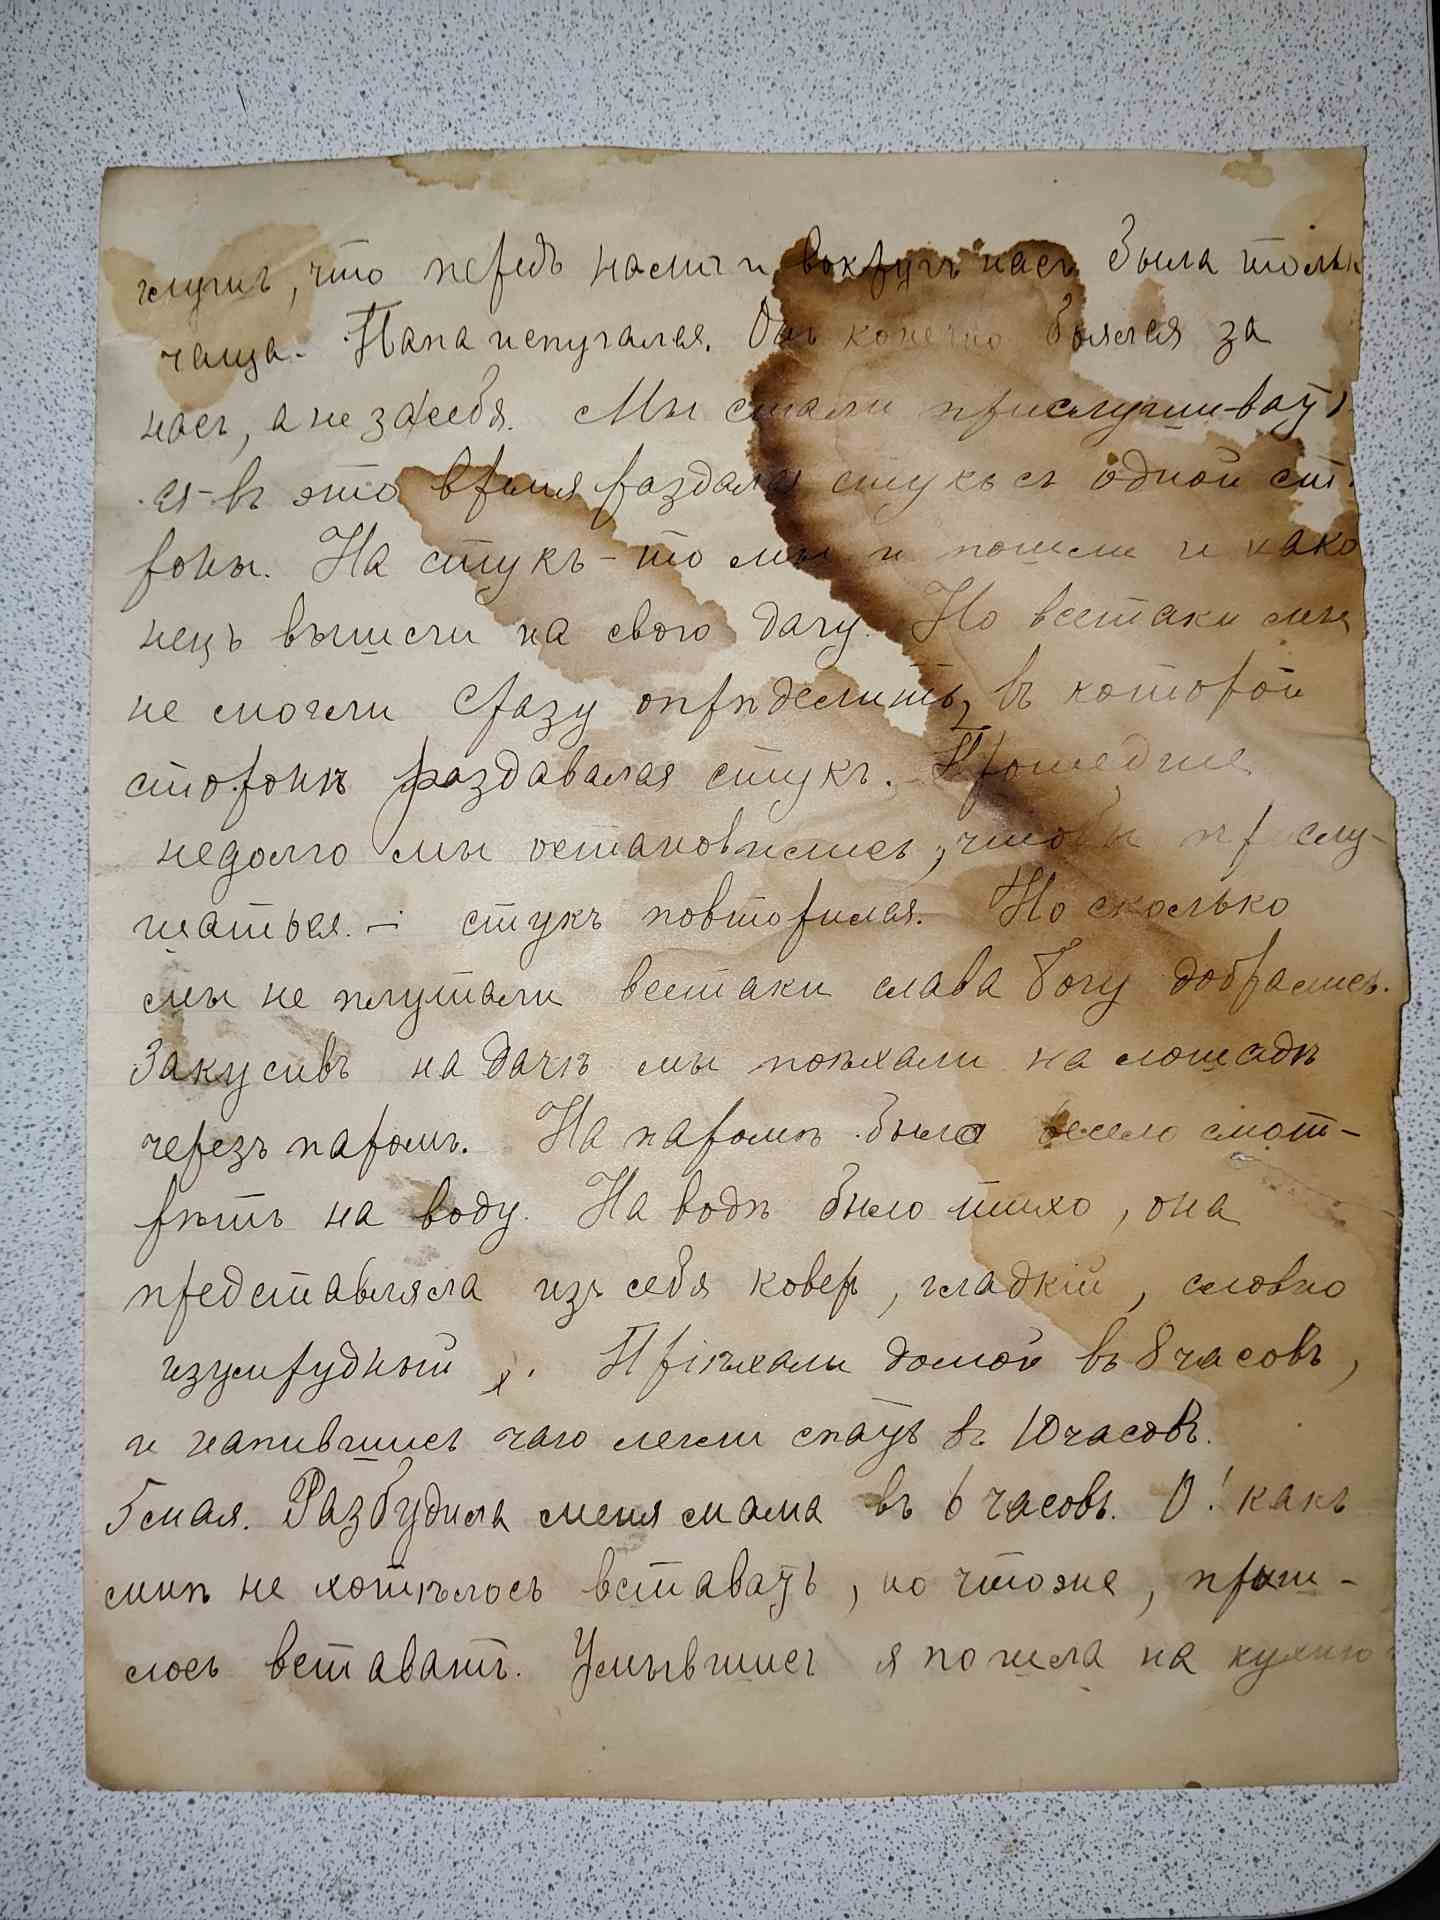 глушь, что передъ нами и вокругъ насъ была тольк
чаща. Папа испугался. Онъ конечно боялся за
насъ, а не за себя. Мы стали прислушивать
ся въ это время раздался стукъ съ одной ст
роны. На стукъ-то мы и пошли и нако
нецъ вышли на свою дачу. Но всетаки мы
не могли сразу опрѣделить, въ которой
сторонѣ раздавался стукъ. Прошедше
недолго мы остановились, чтобы прислу-
шаться. – стукъ повторился. Но сколько
мы не плутали всетаки слава богу добрались.
Закусивъ на дачѣ мы поѣхали на лошадѣ
черезъ паромъ. На паромѣ было весело смот-
рѣть на воду. На водѣ было тихо, она
представляла изъ себя коверъ, гладкій, словно
изумрудный. Пріѣхали домой въ 8 часовъ,
и напившись чаю легли спать въ 10 часовъ.
5 мая. Разбудила меня мама въ 6 часовъ. О! какъ
мнѣ не хотѣлось вставать, но чтоже, приш-
лось вставать. Умывшись я пошла на кухню